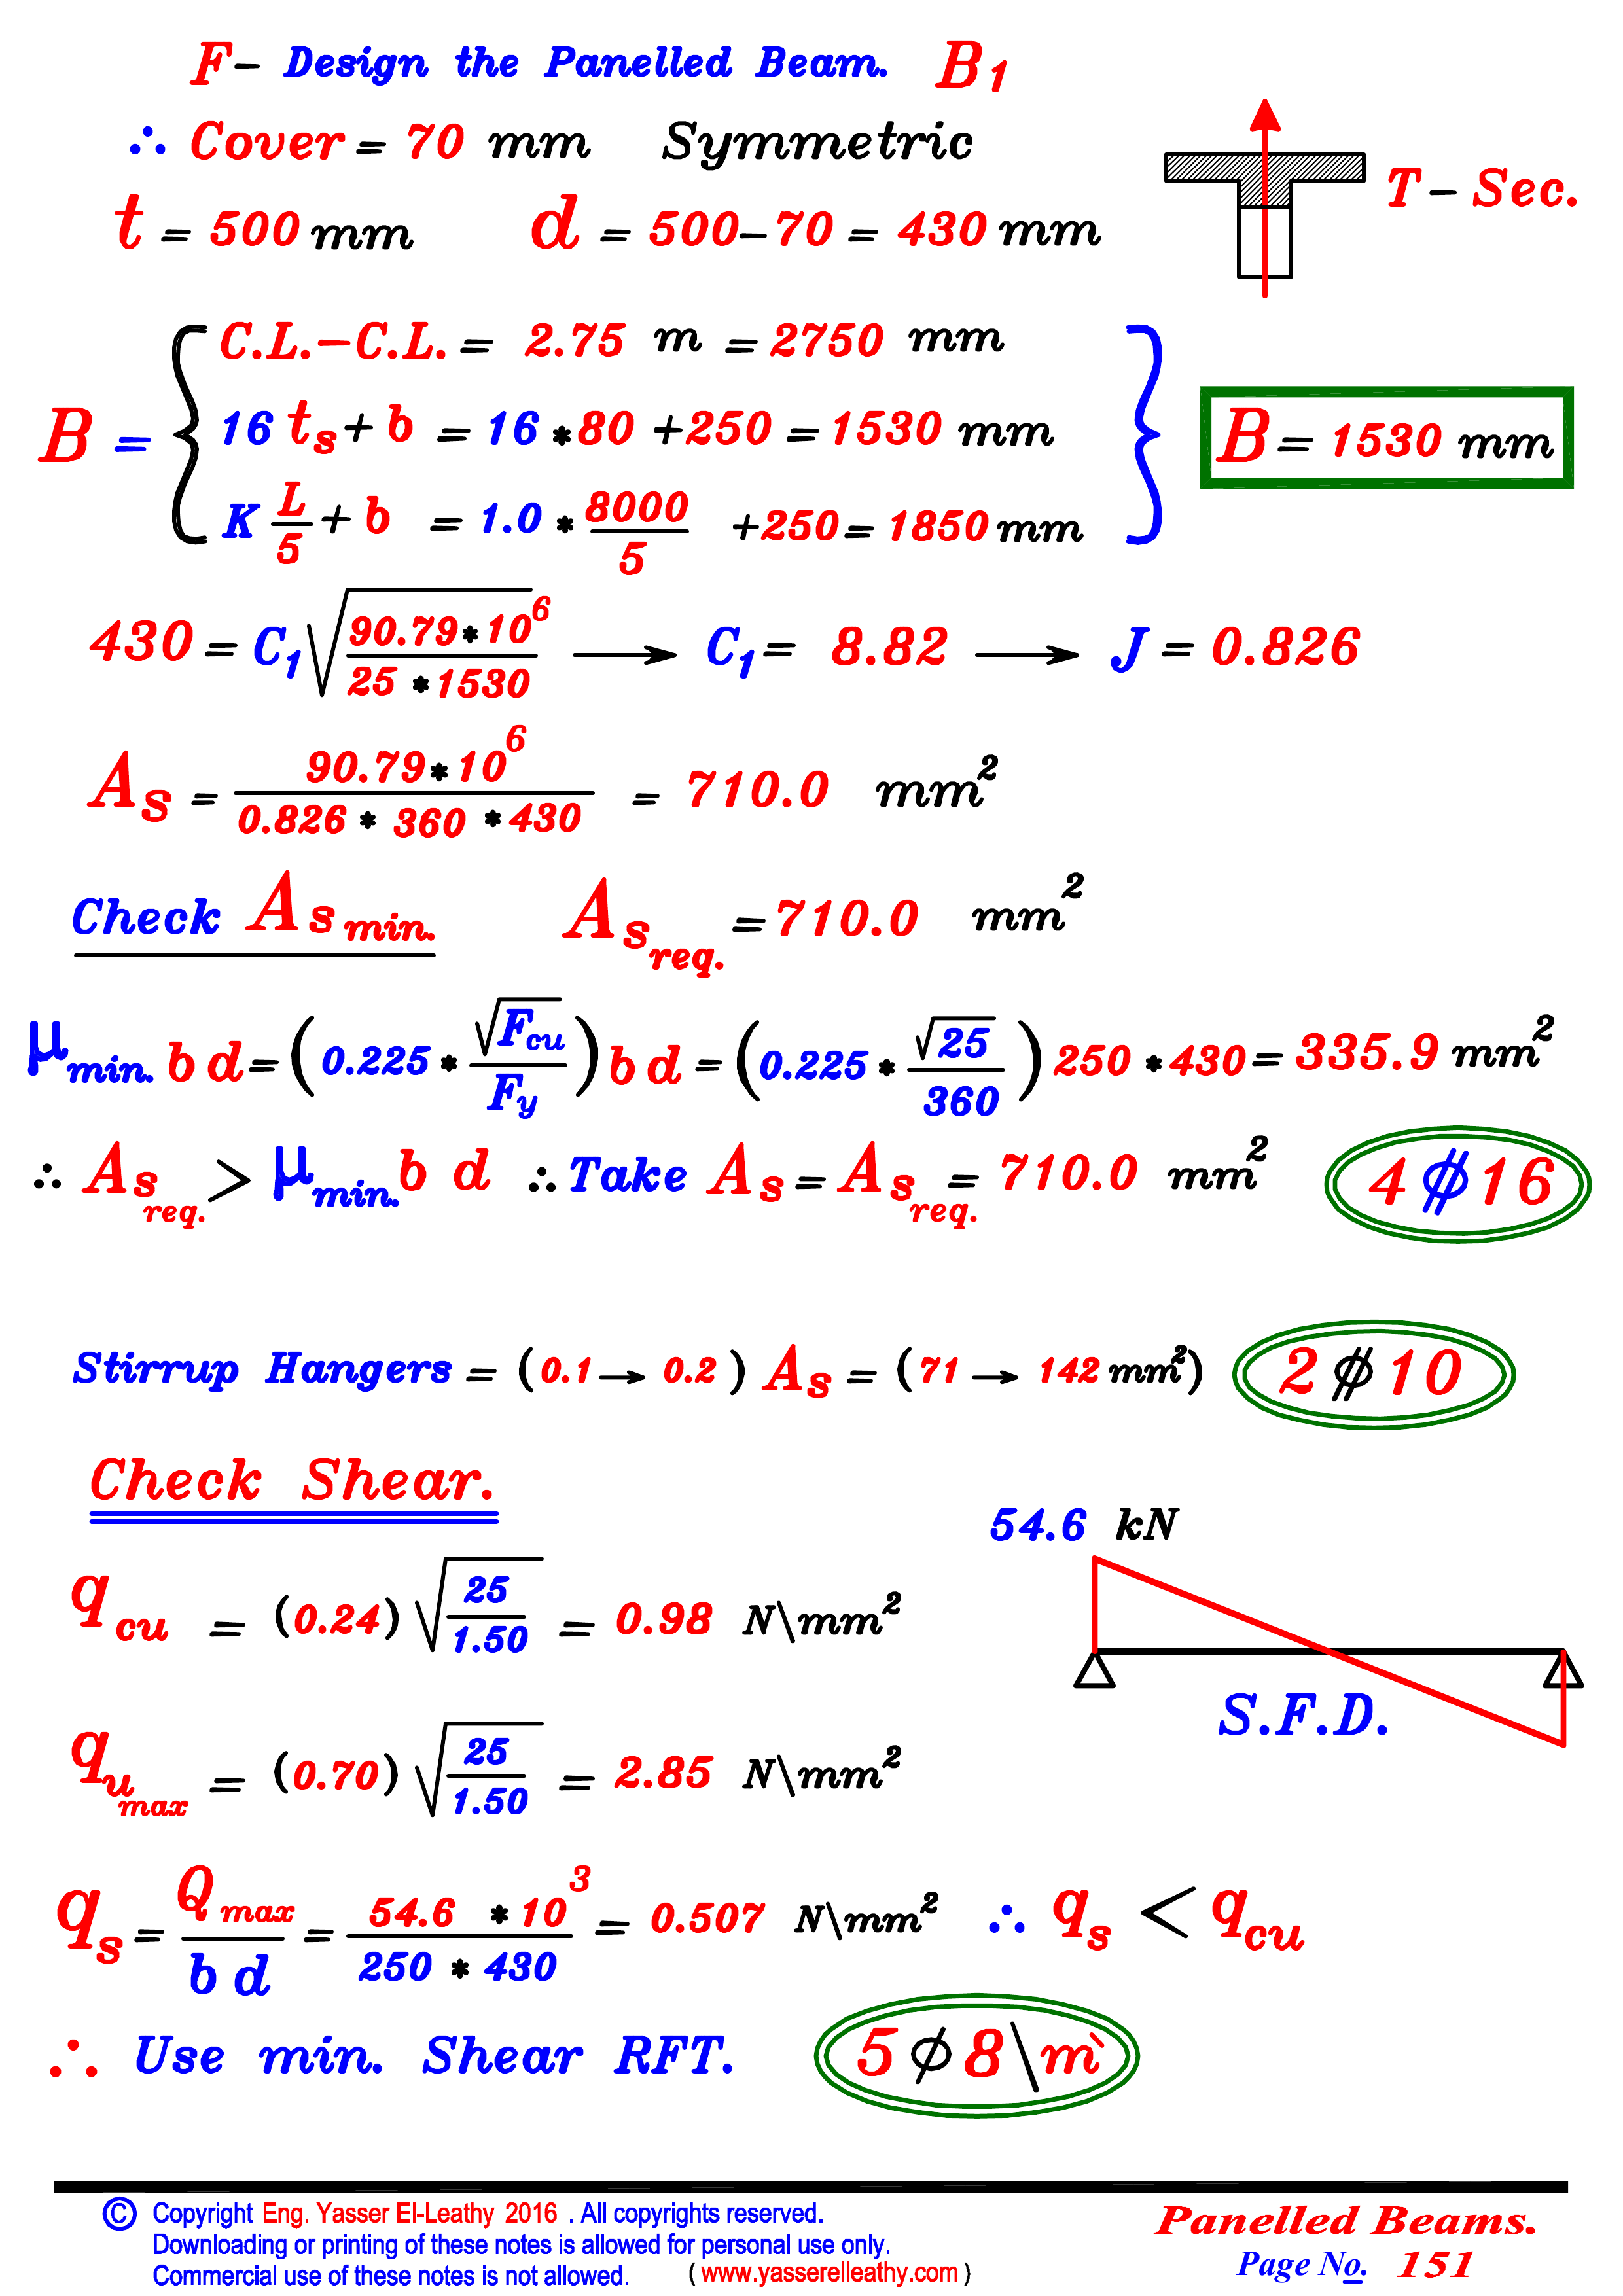 F- Design the Panelled Beam. B1
∴ Cover = 70 mm Symmetric
T - Sec.
t = 500 mm d = 500-70 = 430 mm
B = { C.L.-C.L. = 2.75 m = 2750 mm
16 ts + b = 16 * 80 + 250 = 1530 mm } B = 1530 mm
K L/5 + b = 1.0 * 8000/5 + 250 = 1850 mm
430 = C1 √(90.79 * 10^6 / 25 * 1530) → C1 = 8.82 → J = 0.826
As = 90.79 * 10^6 / 0.826 * 360 * 430 = 710.0 mm²
Check As min. As req. = 710.0 mm²
μ min. b d = (0.225 * √Fcu / Fy) b d = (0.225 * √25 / 360) 250 * 430 = 335.9 mm²
∴ As req. > μ min. b d ∴ Take As = As req. = 710.0 mm² 4 ⌀ 16
Stirrup Hangers = (0.1 → 0.2) As = (71 → 142 mm²) 2 ⌀ 10
Check Shear.
54.6 kN
q cu = (0.24) √(25 / 1.50) = 0.98 N\mm²
S.F.D.
q u max = (0.70) √(25 / 1.50) = 2.85 N\mm²
qs = Q max / b d = 54.6 * 10^3 / 250 * 430 = 0.507 N\mm² ∴ qs < qcu
∴ Use min. Shear RFT. 5 ϕ 8\m`
© Copyright Eng. Yasser El-Leathy 2016 . All copyrights reserved.
Downloading or printing of these notes is allowed for personal use only.
Commercial use of these notes is not allowed. ( www.yasserelleathy.com )
Panelled Beams.
Page No. 151